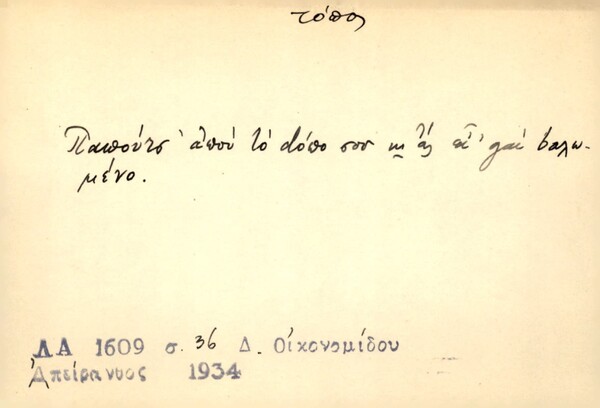 τόπος
Παπούτσ' ἀπού τὸ dόπο σου κι ἂς εἶ' μαὶ βαλω-
μένο.
ΛΑ 1609 σ. 36 Δ. Οἰκονομίδου
Ἀπείρανθος 1934